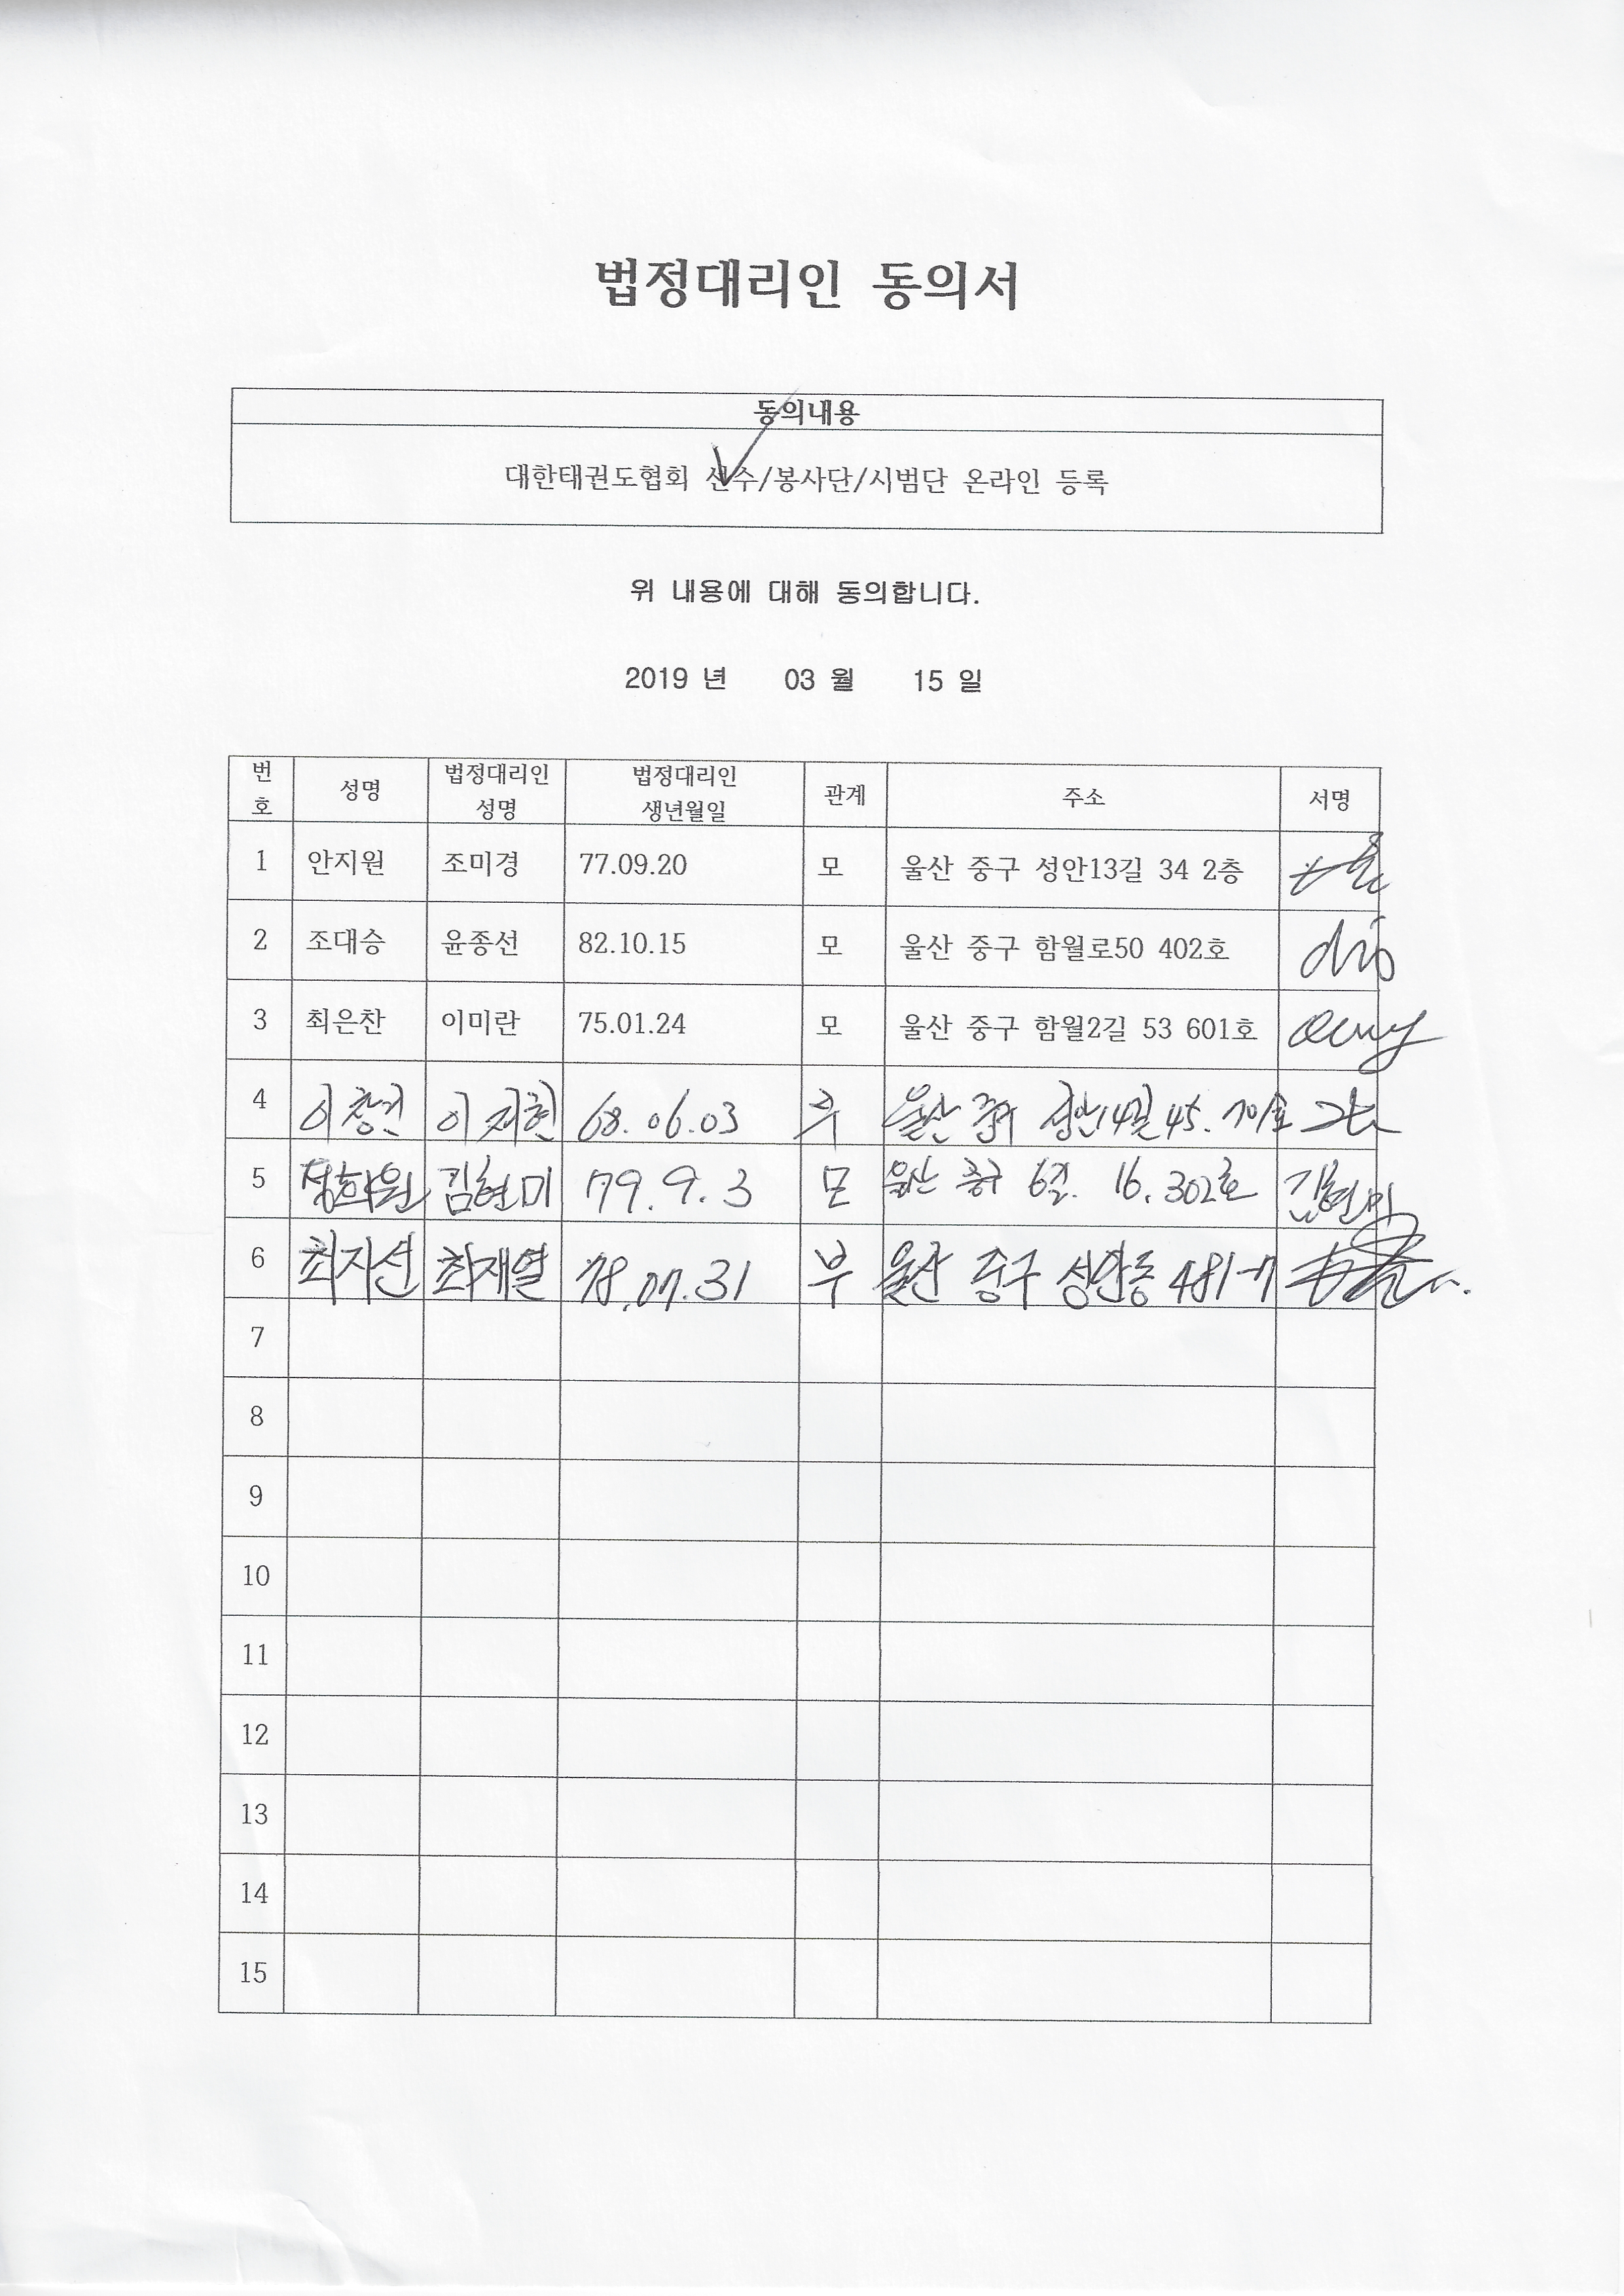 법정대리인 동의서
동의내용
대한태권도협회 선수/봉사단/시범단 온라인 등록
위 내용에 대해 동의합니다.
2019 년 03 월 15 일
번호 성명 법정대리인 성명 법정대리인 생년월일 관계 주소 서명
1 안지원 조미경 77.09.20 모 울산 중구 성안13길 34 2층
2 조대승 윤종선 82.10.15 모 울산 중구 함월로50 402호
3 최은찬 이미란 75.01.24 모 울산 중구 함월2길 53 601호
4 이지현 68.06.03 울산 중구 성안14길 45. 701호
5 정희원 김현미 79.9.3 모 울산 중구 6길. 16, 302호 김현미
6 최지선 최재열 78.07.31 부 울산 중구 성안동 481-7
7
8
9
10
11
12
13
14
15